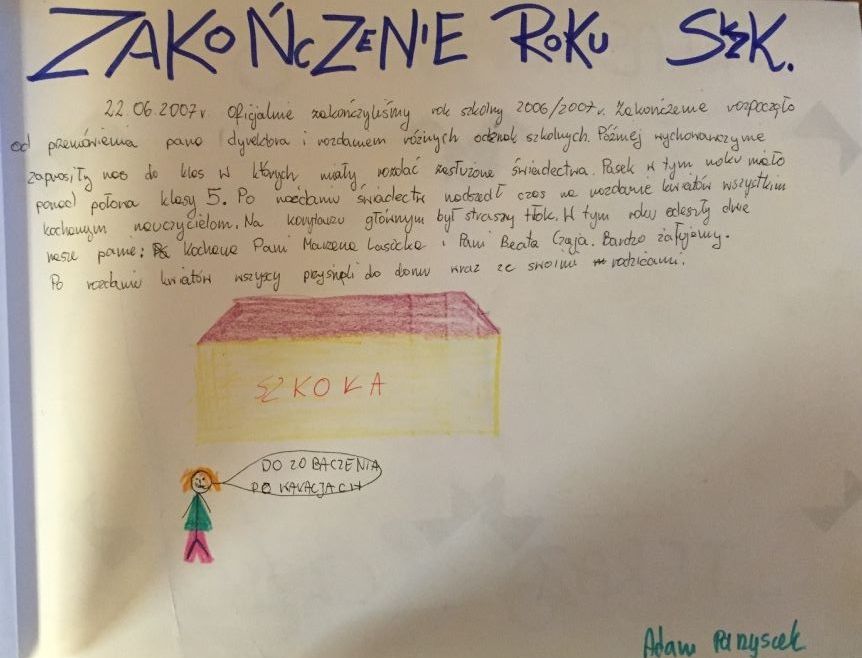 ZAKOŃCZENIE ROKU SZK.
22.06.2007r. Oficjalnie zakończyliśmy rok szkolny 2006/2007r. Zakończenie rozpoczęło
od przemówienia pana dyrektora i rozdaniem różnych odznak szkolnych. Później wychowawczynie
zaprosiły nas do klas w których miały rozdać zasłużone świadectwa. Pasek w tym roku miało
ponad połowa klasy 5. Po rozdaniu świadectw nadszedł czas na rozdanie kwiatów wszystkim
kochanym nauczycielom. Na korytarzu głównym był straszy tłok. W tym roku odeszły dwie
nasze panie: Kochana Pani Marzena Lasocka i Pani Beata Czaja. Bardzo żałujemy.
Po rozdaniu kwiatów wszyscy do domu wraz ze swoimi rodzicami.
SZKOŁA
DO ZOBACZENIA
PO WAKACJACH
Adam